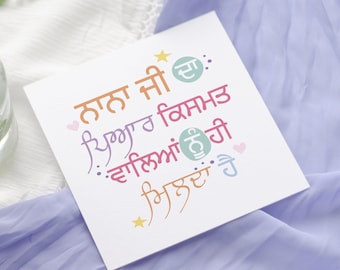 ਨਾਨਾ ਜੀ ਦਾ
ਪਿਆਰ ਕਿਸਮਤ
ਵਾਲਿਆਂ ਨੂੰ ਹੀ
ਮਿਲਦਾ ਹੈ